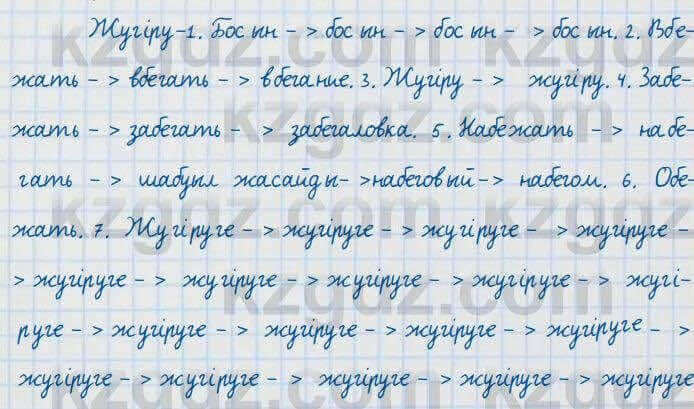 Жүгіру-1. Босын -> босын -> босын -> босын. 2. Вбе-
жать -> вбегать -> вбегание. 3. Жүгіру -> жүгіру. 4. Забе-
жать -> забегать -> забегаловка. 5. Набежать -> набе-
гать -> шабуыл жасайды->набеговый-> набегом. 6. Обе-
жать. 7. Жүгіруге -> жүгіруге -> жүгіруге -> жүгіруге -
> жүгіруге -> жүгіруге -> жүгіруге -> жүгіруге -> жүгі-
руге -> жүгіруге -> жүгіруге -> жүгіруге -> жүгіруге ->
жүгіруге -> жүгіруге -> жүгіруге -> жүгіруге -> жүгіруге
kzgdz.com